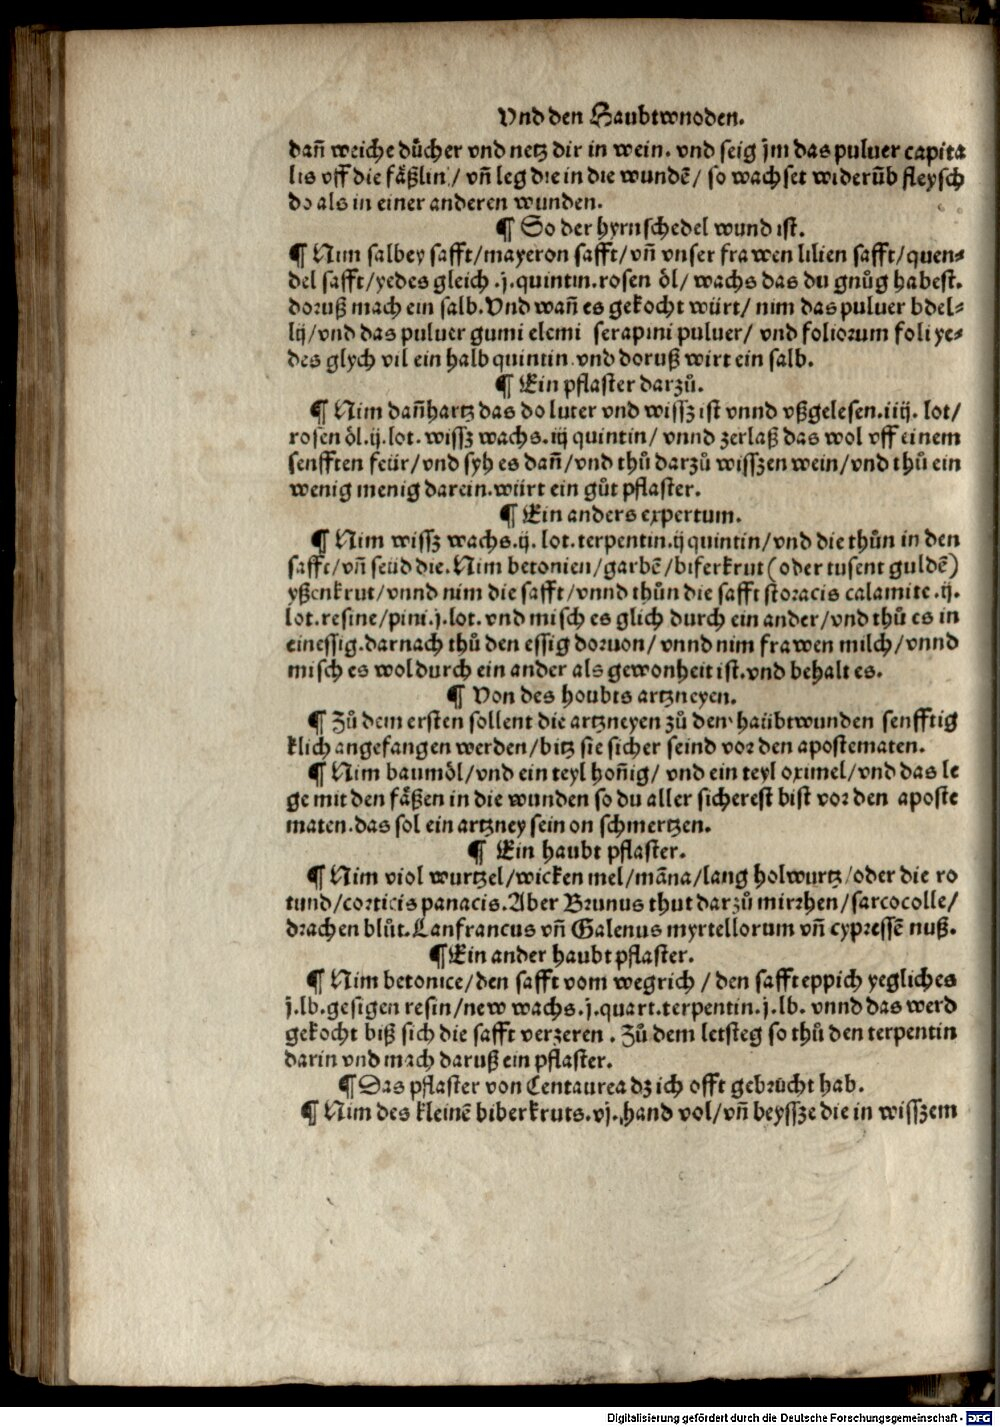 Vnd den Haubtwnoden.
dañ weiche dücher vnd netz dir in wein. vnd seig jm das puluer capita
lis vff die fäßlin / vñ leg die in die wundē / so wachset widerūb fleysch
do als in einer anderen wunden.
¶ So der hyrnschedel wund ist.
¶ Nim salbey safft/mayeron safft/vñ vnser frawen lilien safft/quen⸗
del safft/yedes gleich .j.quintin.rosen öl/ wachs das du gnůg habest.
doruß mach ein salb.Vnd wañ es gekocht würt/ nim das puluer bdel⸗
lij/vnd das puluer gumi elemi serapini puluer/ vnd foliorum foli ye⸗
des glych vil ein halb quintin.vnd doruß wirt ein salb.
¶ Ein pflaster darzů.
¶ Nim dañhartz das do luter vnd wissz ist vnnd vßgelesen.iiij. lot/
rosen öl.ij.lot.wissz wachs.iij quintin/ vnnd zerlaß das wol vff einem
senfften feür/vnd syh es dañ/vnd thů darzů wisszen wein/vnd thů ein
wenig menig darein.würt ein gůt pflaster.
¶ Ein anders expertum.
¶ Nim wissz wachs.ij. lot.terpentin.ij quintin/vnd die thůn in den
safft/vñ seüd die.Nim betonien/garbē/biferkrut(oder tusent guldē)
yßenkrut/vnnd nim die safft/vnnd thůn die safft storacis calamite.ij.
lot.resine/pini.j.lot.vnd misch es glich durch ein ander/vnd thů es in
einessig.darnach thů den essig doruon/ vnnd nim frawen milch/vnnd
misch es wol durch ein ander als gewonheit ist.vnd behalt es.
¶ Von des houbts artzneyen.
¶ Zů dem ersten sollent die artzneyen zů den haübtwunden senfftig
klich angefangen werden/bitz sie sicher seind vor den apostematen.
¶ Nim baumöl/vnd ein teyl hoñig/ vnd ein teyl oximel/vnd das le
ge mit den fäßen in die wunden so du aller sicherest bist vor den aposte
maten.das sol ein artzney sein on schmertzen.
¶ Ein haubt pflaster.
¶ Nim viol wurtzel/wicken mel/māna/lang holwurtz/oder die ro
tund/corticis panacis.Aber Brunus thut darzů mirrhen/sarcocolle/
drachen blůt.Lanfrancus vñ Galenus myrtellorum vñ cypressē nuß.
¶Ein ander haubt pflaster.
¶ Nim betonice/den safft vom wegrich / den saffteppich yegliches
j.lb.gesigen resin/new wachs.j.quart.terpentin.j.lb. vnnd das werd
gekocht biß sich die safft verzeren . Zů dem letsteg so thů den terpentin
darin vnd mach daruß ein pflaster.
¶Das pflaster von Centaurea dz ich offt gebrücht hab.
¶ Nim des kleinē biberkruts.vj.hand vol/vñ beyssze die in wisszem
Digitalisierung gefördert durch die Deutsche Forschungsgemeinschaft - DFG